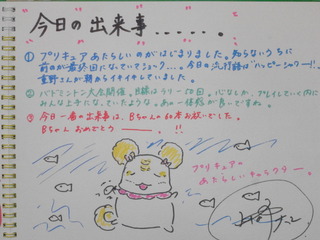 "今日の出来事......。"
① プリキュアあたらしいのがはじまりました。知らないうちに
前のが最終回になっていてショーク...。今日の流行語は"ハッピーシャワー!!"
重野さんが朝からイキイキしていました。
② バドミントン大会開催。目標はラリー50回。心なしか、プレイしていく内に
みんな上手になっていたような。あぁ一体感が良いですね。
③ 今日一番の出来事は、Bちゃんの60本お祝いでした。
Bちゃんおめでとう――。!!
プリキュアの
あたらしいキャラクター。